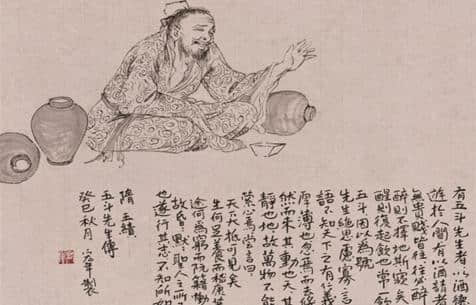 有五斗先生者以酒德
遊於人間有以酒請者
無貴賤皆往往必醉
醉則不擇地斯寢矣
醒則復起飲也常一飲
五斗因以為號
先生絕思慮寡言
語不知天下之有仁義
厚薄也忽焉而去
然而來其動也天其
靜也地故萬物不能
縈心焉嘗言曰
天下大抵可見矣
生何足養而嵇康
途何為窮而阮籍慟
故昏昏默默聖人之所
也遂行其志不知所如
隋 王績
五斗先生傳
癸巳秋月 年製